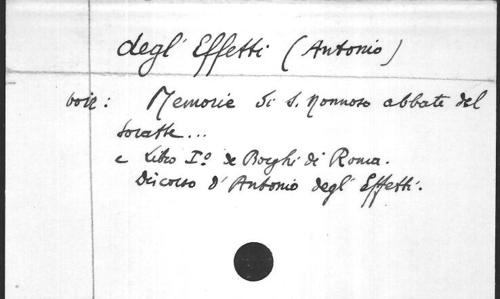 degl' Effetti (Antonio)
voir : Memorie di S. Nonnoso abbate del
Soratte...
e Libro I.º de Borghi di Roma.
Discorso d' Antonio degl' Effetti.